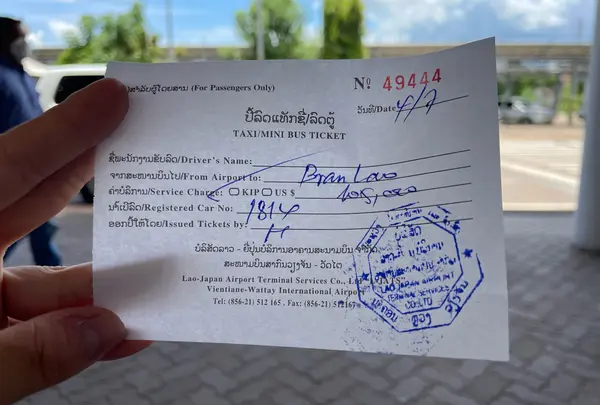 ສຳລັບຜູ້ໂດຍສານ (For Passengers Only)
Nº 49444
ວັນທີ/Date 4/7
ປີ້ລົດແທັກຊີ່/ລົດຕູ້
TAXI/MINI BUS TICKET
ຊື່ພະນັກງານຂັບລົດ/Driver's Name:
ຈາກສະໜາມບິນໄປ/From Airport to:
ຄ່າບໍລິການ/Service Charge: KIP US $
ນາເບີລົດ/Registered Car No: 1814
ອອກປີ້ໃຫ້ໂດຍ/Issued Tickets by:
ບໍລິສັດລາວ - ຍີ່ປຸ່ນບໍລິການອາຄານສະໜາມບິນ ຈຳກັດ
ສະໜາມບິນສາກົນວຽງຈັນ - ວັດໄຕ
Lao-Japan Airport Terminal Services Co., Ltd
Vientiane-Wattay International Airport
Tel: (856-21) 512 165 . Fax: (856-21) 512167
LAO JAPAN AIRPORT
TERMINAL SERVICES
CO.LTD